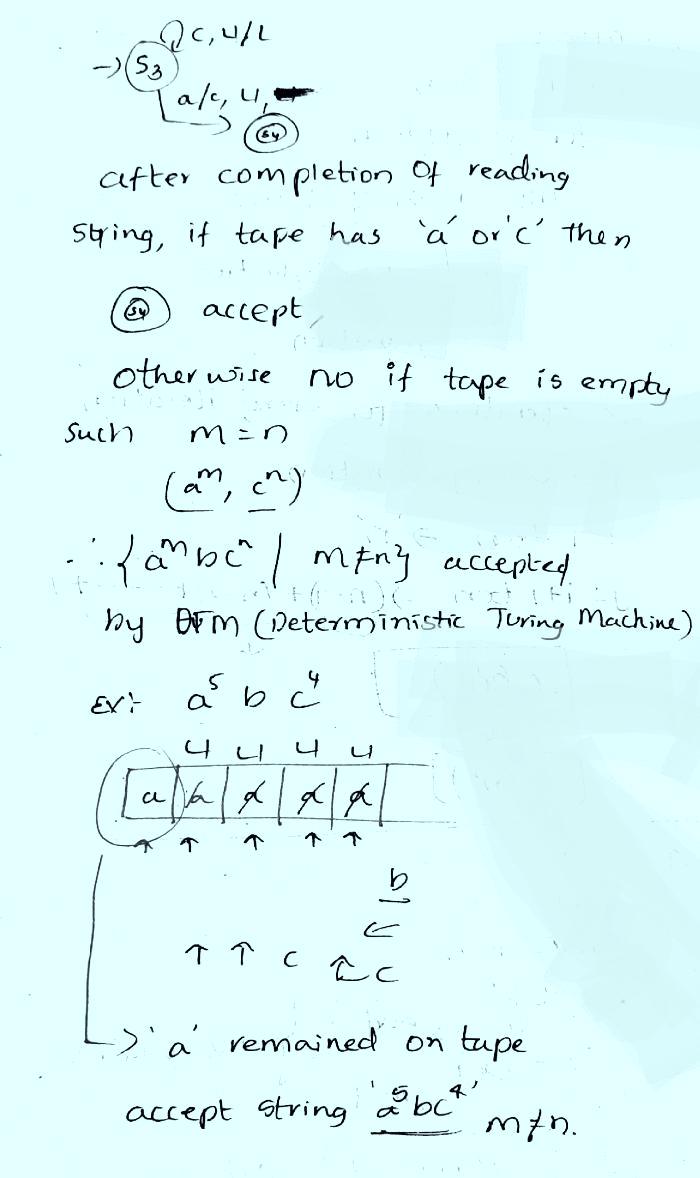 c, ⊔/L
→ S3
a/c, ⊔,
S4
after completion of reading
string, if tape has 'a' or 'c' then
S4 accept
otherwise no if tape is empty
such m = n
(a^m, c^n)
∴ {a^m b c^n | m≠n} accepted
by DTM (Deterministic Turing Machine)
Ex:- a^5 b c^4
⊔ ⊔ ⊔ ⊔
a a a a a
↑ ↑ ↑ ↑ ↑
b
←
↑ ↑ c ↑ c
→ 'a' remained on tape
accept string 'a^5bc^4' m≠n.